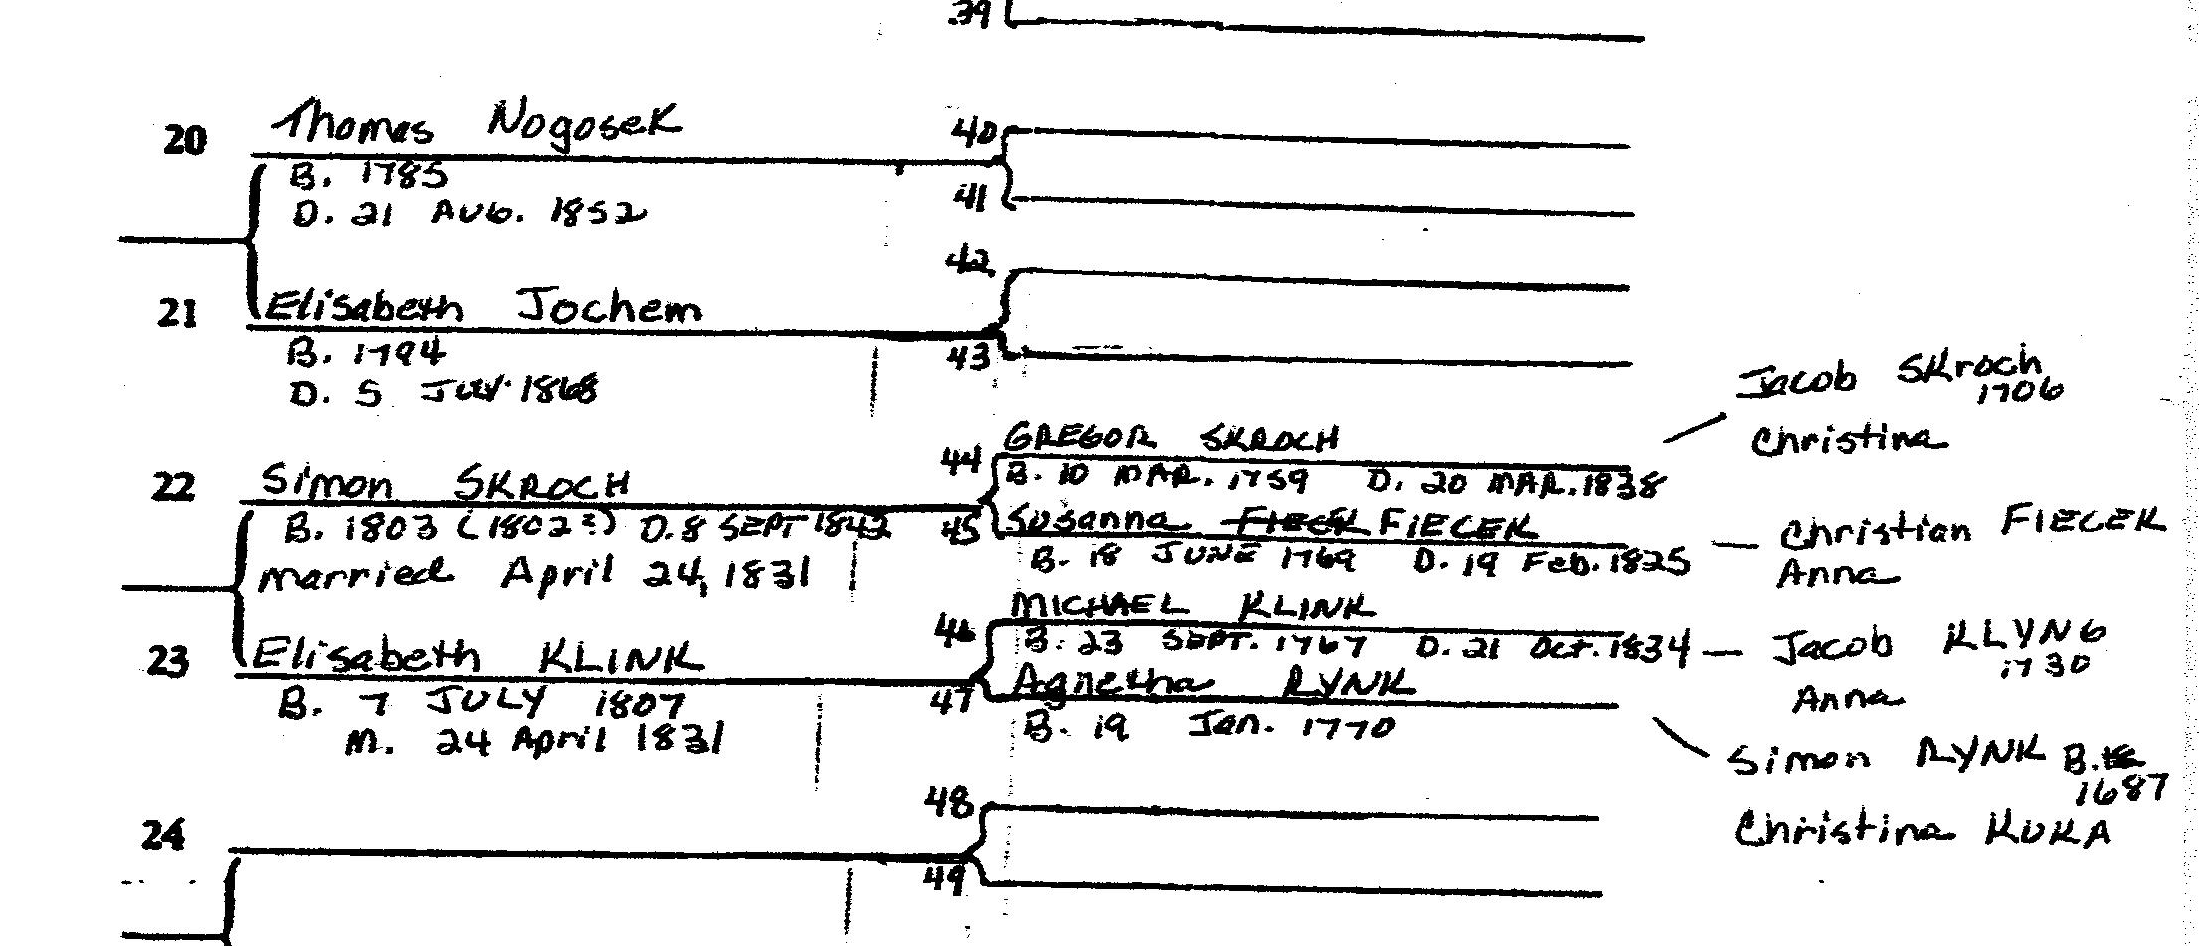 39
20 Thomas Nogosek
B. 1785
D. 21 AUG. 1852
40
41
21 Elisabeth Jochem
B. 1794
D. 5 JULY 1868
42
43
22 Simon SKROCH
B. 1803 (1802?) D. 8 SEPT 1842
married April 24, 1831
44 GREGOR SKROCH
B. 10 MAR. 1759 D. 20 MAR. 1838
Jacob SKroch
1706
Christina
45 Susanna FIECEK FIECEK
B. 18 JUNE 1769 D. 19 Feb. 1825
Christian FIECEK
Anna
23 Elisabeth KLINK
B. 7 JULY 1807
M. 24 April 1831
46 MICHAEL KLINK
B. 23 SEPT. 1767 D. 21 Oct. 1834
Jacob KLYNG
1730
Anna
47 Agnetha RYNK
B. 19 Jan. 1770
Simon RYNK B.
1687
Christina KUKA
24
48
49